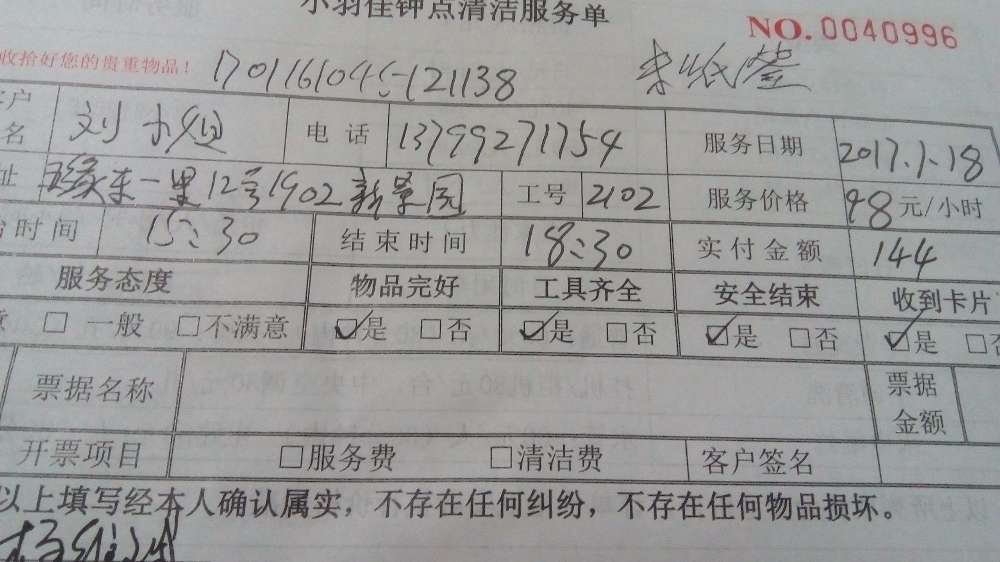 小羽佳钟点清洁服务单 NO.0040996
收拾好您的贵重物品！
户名 刘小姐 电话 13799271754 服务日期 2017.1.18
址 东一里12号1902新景园 工号 2102 服务价格 48元/小时
时间 15:30 结束时间 18:30 实付金额 144
服务态度 物品完好 工具齐全 安全结束 收到卡片
意 □一般 □不满意 ☑是 □否 ☑是 □否 ☑是 □否 ☑是 □否
票据名称 票据金额
开票项目 □服务费 □清洁费 客户签名
以上填写经本人确认属实，不存在任何纠纷，不存在任何物品损坏。